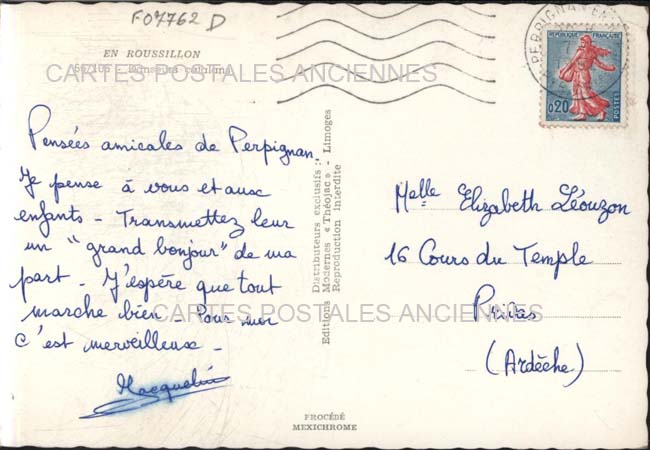 F07762 D
EN ROUSSILLON
56/106 - Danseurs catalans
CARTES POSTALES ANCIENNES
Pensées amicales de Perpignan
Je pense à vous et aux
enfants - Transmettez leur
un "grand bonjour" de ma
part - J'espère que tout
marche bien - Pour moi
c'est merveilleux -
Distributeurs exclusifs :
Editions Modernes « Théojac » - Limoges
Reproduction interdite
PROCÉDÉ
MEXICHROME
PERPIGNAN
REPUBLIQUE FRANÇAISE
0,20
POSTES
Melle Elizabeth Léouzon
16 Cours du Temple
Privas
(Ardèche)
CARTES POSTALES ANCIENNES